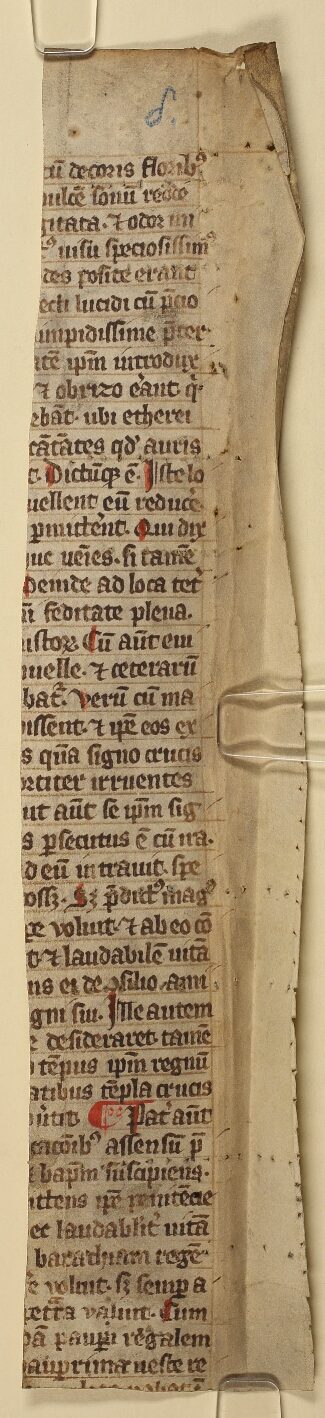 cū decoris florib⁹
dulcē sonū redde
gitata. ⁊ odor mi
uisu speciosissim
des posite erant
lecti lucidi cū p̄cio
limpidissime p̄ter
ipm̄ introdux
⁊ obrizo erant q̄
ebat. ubi etherei
cātātes qd̛ auris
t. Dictūq̄ ē. Iste lo
uellent eū reducē
permittent. Qui dix
que uēies. si tamē
Deinde ad loca tet
feditate plena.
istoꝝ. Cū aūt eū
uelle. ⁊ ceterarū
bat. Verū cū ma
issent. ⁊ ip̄e eos ex
s q̄ua signo crucis
rtiter irruentes
ut aūt se ip̄m sig
s p̄secutus ē cū ira.
d eū intrauit. spe
Sꝫ p̄dict⁹ mag⁹
re voluit. ⁊ ab eo cō
t. ⁊ laudabilē uitā
ns ei de ꝯsilio ami
gni sui. Ille autem
desideraret. tamē
tēpus ip̄m regnū
atibus tēpla crucis
Pat̛ aūt
assensū p̄
bap̄m suscipiens.
ittens ip̄e penitēcie
et laudabilit̛ uitā
barachiam regē
e voluit. sꝫ semp̱ a
ualuit. Cum
paup̱i regalem
aup̱rima ueste re